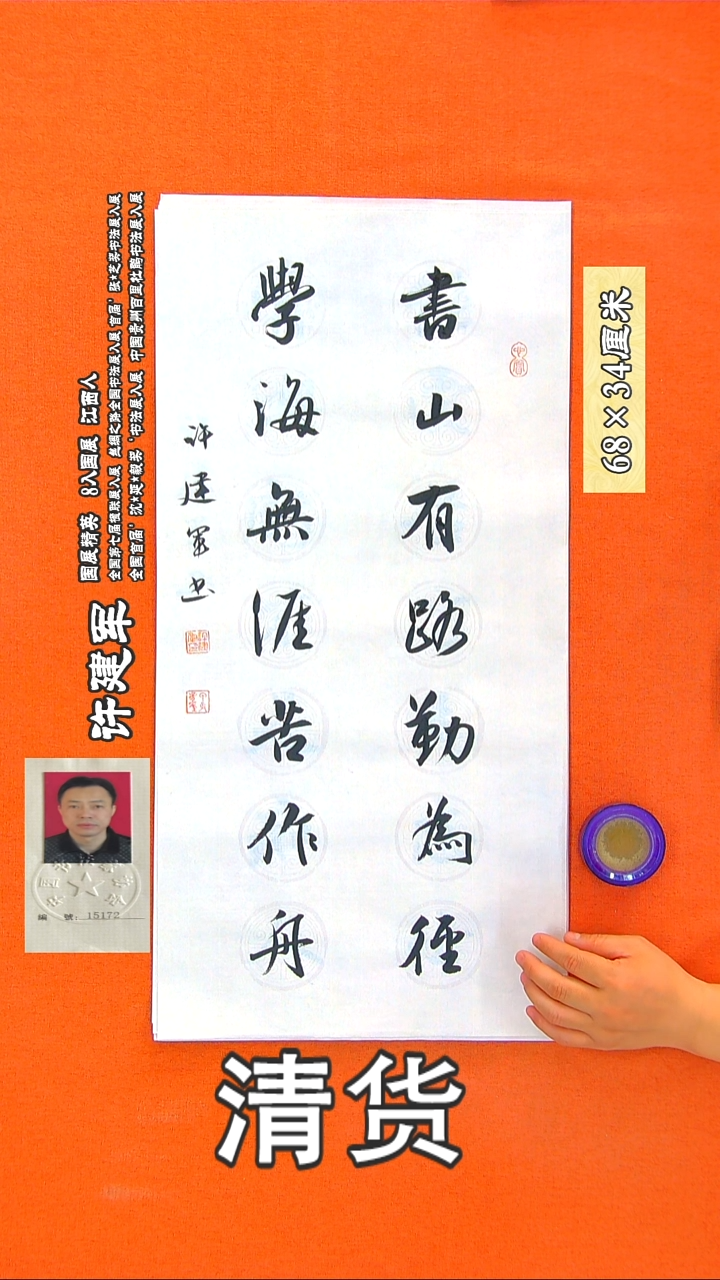 書山有路勤為徑
學海無涯苦作舟
许建军书
68×34厘米
许建军
国展精英 8入国展 江西人
全国第七届楹联展入展 丝绸之路全国书法展入展 首届‘张*芝奖书法展入展
全国首届‘沈*延*毅奖‘书法展入展 中国贵州百里杜鹃书法展入展
編 號:15172
清货